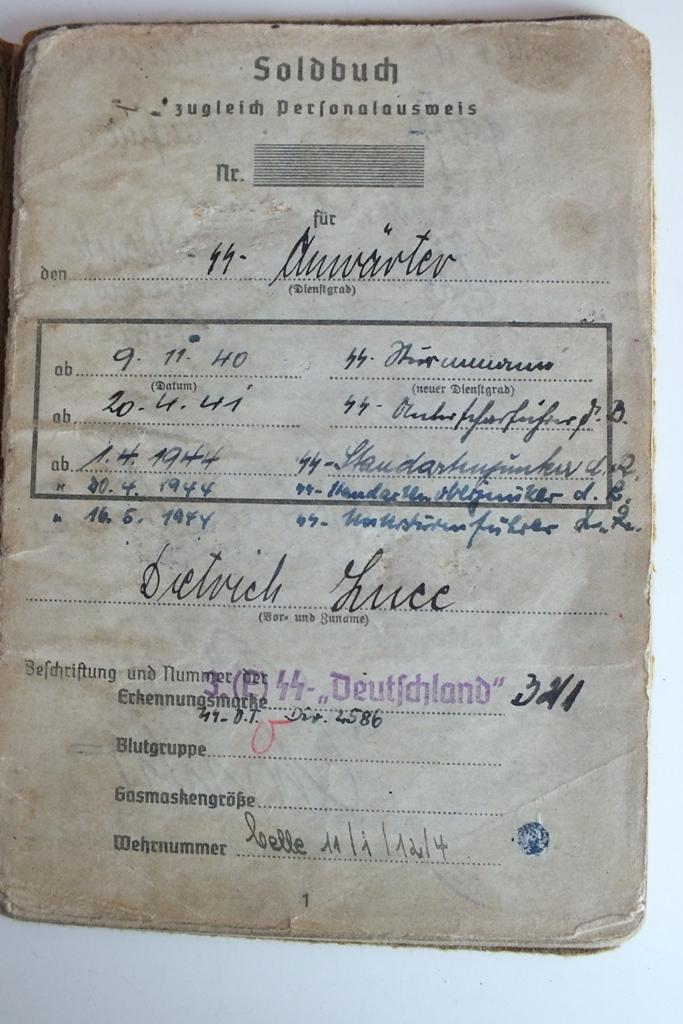 Soldbuch
zugleich Personalausweis
Nr.
für
den ᛋᛋ- Anwärter
(Dienstgrad)
ab 9. 11. 40 ᛋᛋ- Sturmmann
(Datum) (neuer Dienstgrad)
ab 20. 4. 41 ᛋᛋ- Unterscharführer d. R.
ab 1. 4. 1944 ᛋᛋ- Standartenjunker d. R.
" 20. 4. 1944 ᛋᛋ- Standartenoberjunker d. R.
" 16. 6. 1944 ᛋᛋ- Untersturmführer d. R.
Dietrich
(Vor- und Zuname)
Beschriftung und Nummer der
Erkennungsmarke 3. (E) ᛋᛋ-„Deutschland" 321
ᛋᛋ-D.T. Div. 2586
Blutgruppe O
Gasmaskengröße
Wehrnummer Celle 11/1/12/4
1